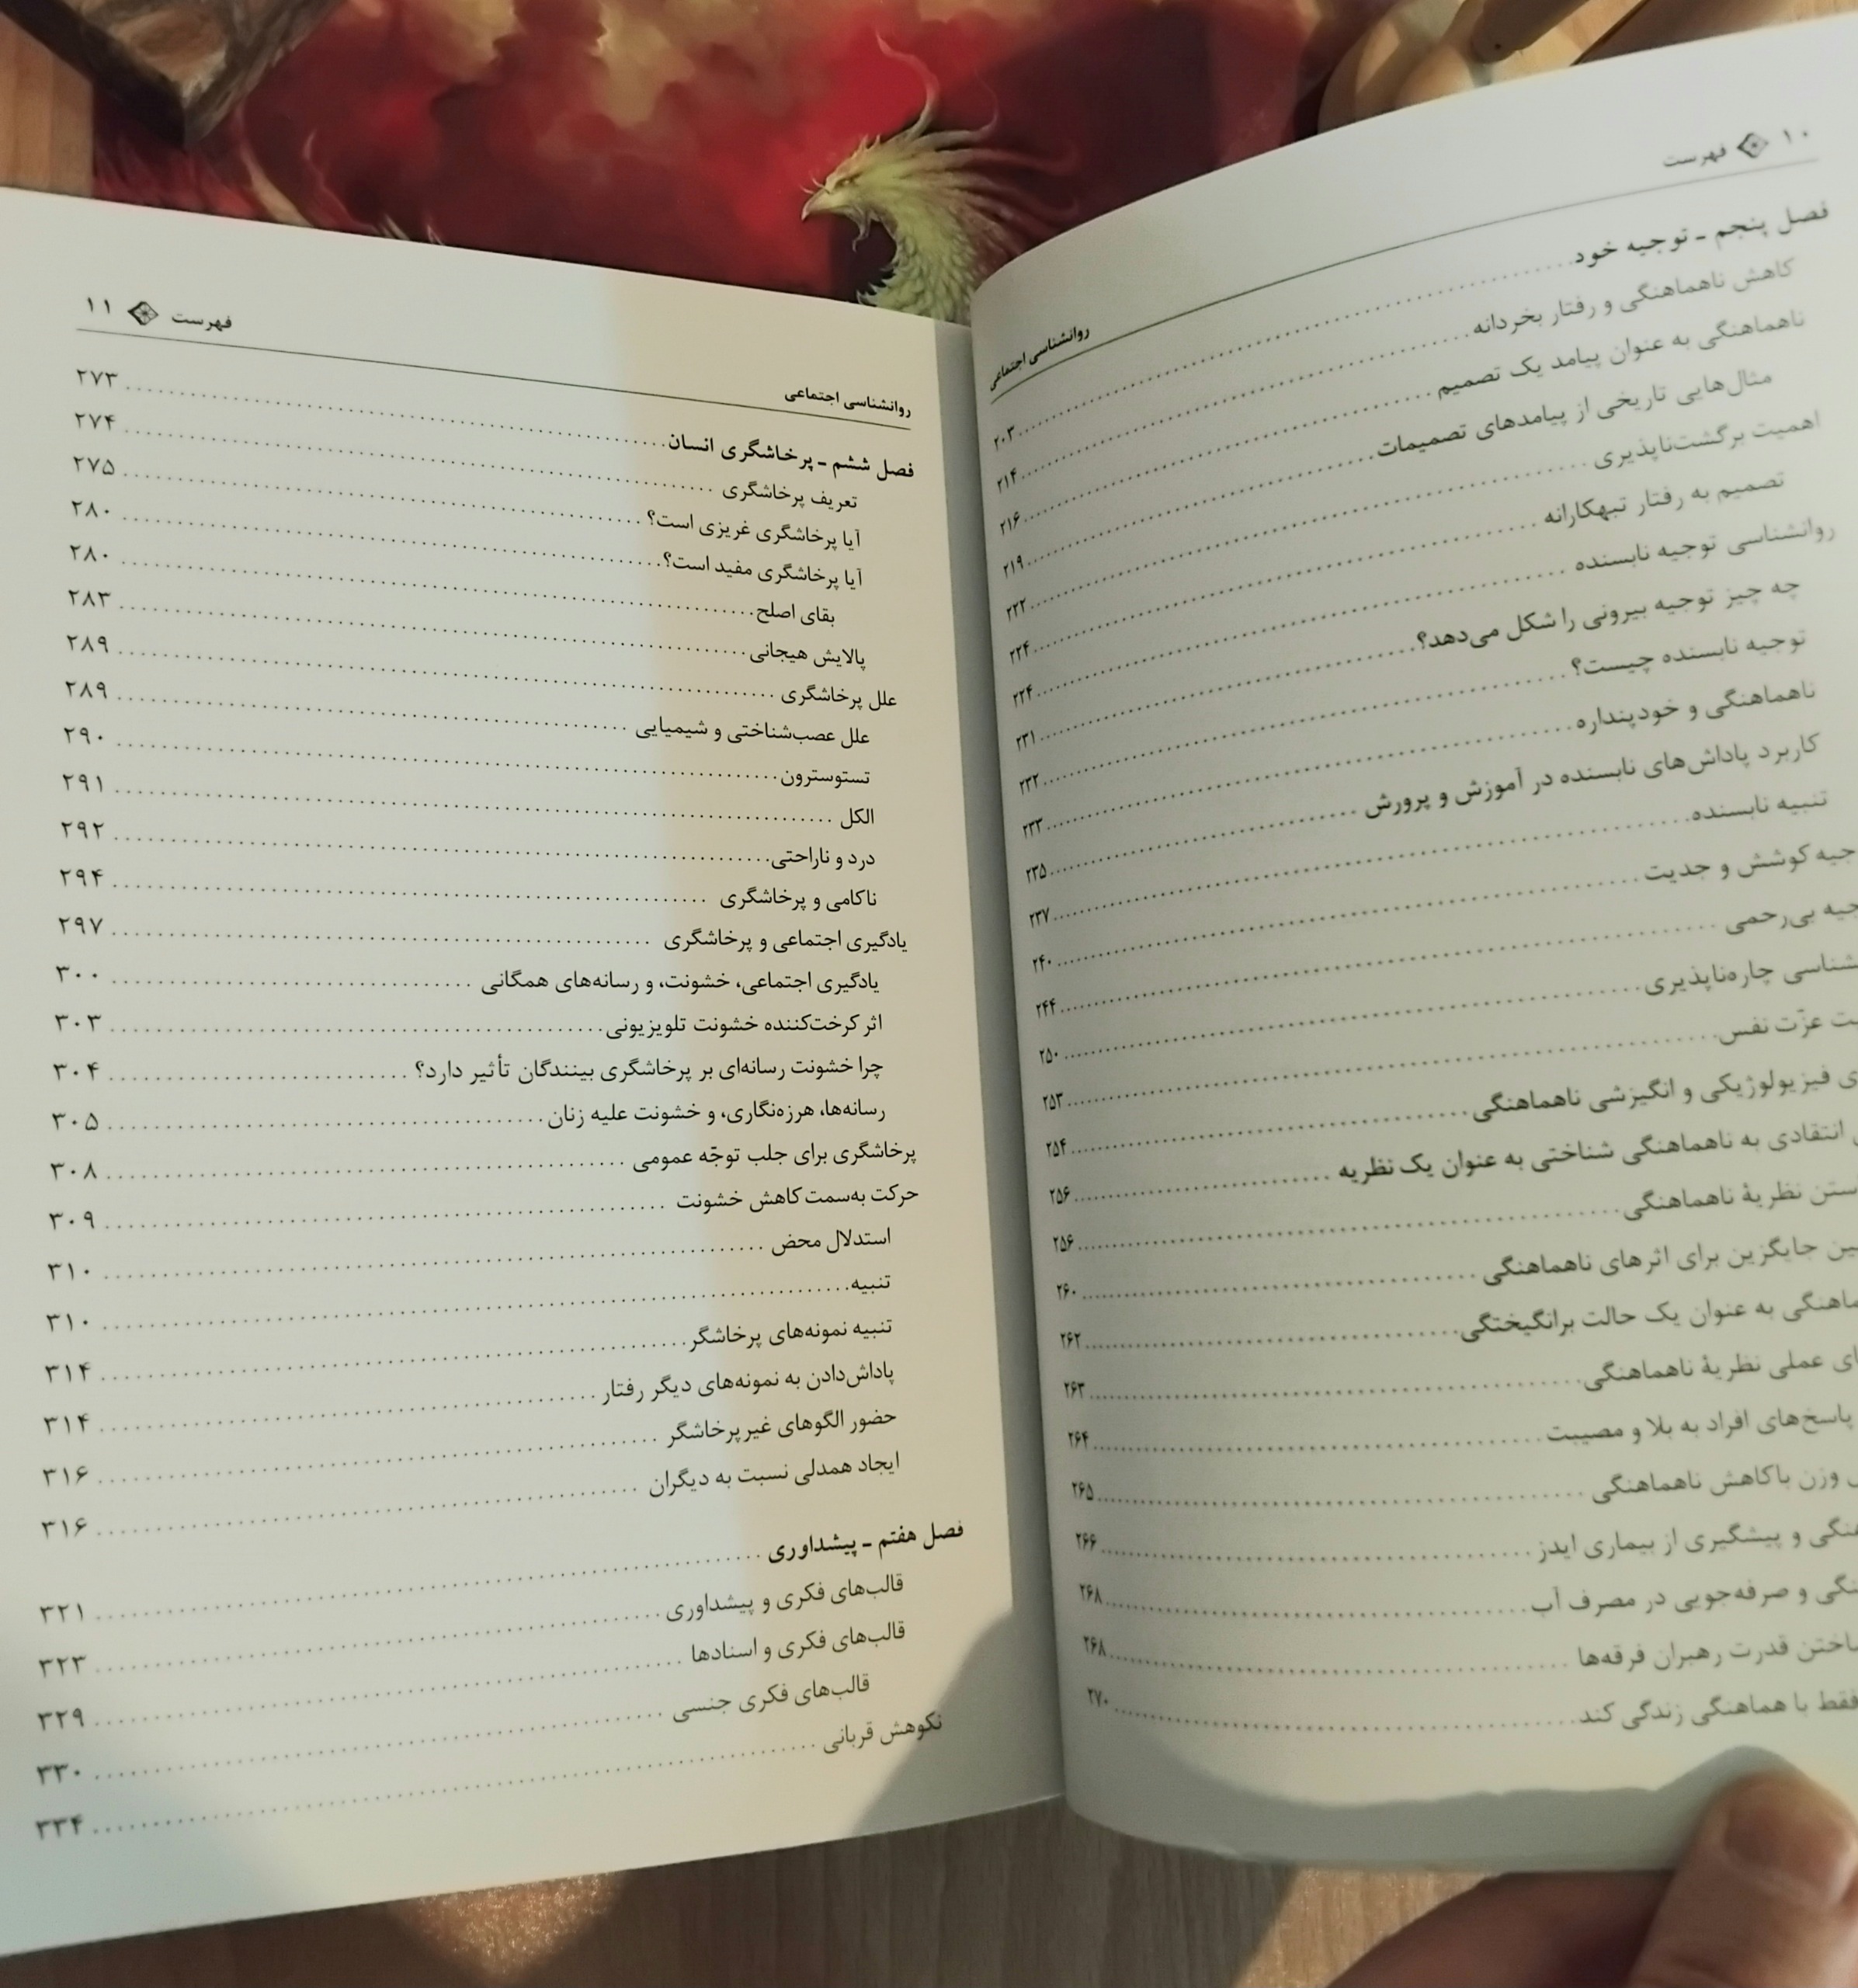 ۱۰ فهرست
روانشناسی اجتماعی
فصل پنجم ـ توجیه خود ........ ۲۰۳
کاهش ناهماهنگی و رفتار بخردانه ........ ۲۱۴
ناهماهنگی به عنوان پیامد یک تصمیم ........ ۲۱۶
مثال‌هایی تاریخی از پیامدهای تصمیمات ........ ۲۱۹
اهمیت برگشت‌ناپذیری ........ ۲۲۲
تصمیم به رفتار تبهکارانه ........ ۲۲۴
روانشناسی توجیه نابسنده ........ ۲۲۴
چه چیز توجیه بیرونی را شکل می‌دهد؟ ........ ۲۳۱
توجیه نابسنده چیست؟ ........ ۲۳۲
ناهماهنگی و خودپنداره ........ ۲۳۳
کاربرد پاداش‌های نابسنده در آموزش و پرورش ........ ۲۳۵
تنبیه نابسنده ........ ۲۳۷
کوشش و جدیت ........ ۲۴۰
بی‌رحمی ........ ۲۴۴
چاره‌ناپذیری ........ ۲۵۰
عزّت نفس ........ ۲۵۳
فیزیولوژیکی و انگیزشی ناهماهنگی ........ ۲۵۴
انتقادی به ناهماهنگی شناختی به عنوان یک نظریه ........ ۲۵۶
نظریهٔ ناهماهنگی ........ ۲۵۶
جایگزین برای اثرهای ناهماهنگی ........ ۲۶۰
به عنوان یک حالت برانگیختگی ........ ۲۶۲
عملی نظریهٔ ناهماهنگی ........ ۲۶۳
پاسخ‌های افراد به بلا و مصیبت ........ ۲۶۴
وزن با کاهش ناهماهنگی ........ ۲۶۵
و پیشگیری از بیماری ایدز ........ ۲۶۶
و صرفه‌جویی در مصرف آب ........ ۲۶۸
قدرت رهبران فرقه‌ها ........ ۲۶۸
فقط با هماهنگی زندگی کند ........ ۲۷۰
فهرست ۱۱
روانشناسی اجتماعی
فصل ششم ـ پرخاشگری انسان ........ ۲۷۳
تعریف پرخاشگری ........ ۲۷۴
آیا پرخاشگری غریزی است؟ ........ ۲۷۵
آیا پرخاشگری مفید است؟ ........ ۲۸۰
بقای اصلح ........ ۲۸۰
پالایش هیجانی ........ ۲۸۳
علل پرخاشگری ........ ۲۸۹
علل عصب‌شناختی و شیمیایی ........ ۲۸۹
تستوسترون ........ ۲۹۰
الکل ........ ۲۹۱
درد و ناراحتی ........ ۲۹۲
ناکامی و پرخاشگری ........ ۲۹۴
یادگیری اجتماعی و پرخاشگری ........ ۲۹۷
یادگیری اجتماعی، خشونت، و رسانه‌های همگانی ........ ۳۰۰
اثر کرخت‌کننده خشونت تلویزیونی ........ ۳۰۳
چرا خشونت رسانه‌ای بر پرخاشگری بینندگان تأثیر دارد؟ ........ ۳۰۴
رسانه‌ها، هرزه‌نگاری، و خشونت علیه زنان ........ ۳۰۵
پرخاشگری برای جلب توجّه عمومی ........ ۳۰۸
حرکت به‌سمت کاهش خشونت ........ ۳۰۹
استدلال محض ........ ۳۱۰
تنبیه ........ ۳۱۰
تنبیه نمونه‌های پرخاشگر ........ ۳۱۴
پاداش‌دادن به نمونه‌های دیگر رفتار ........ ۳۱۴
حضور الگوهای غیرپرخاشگر ........ ۳۱۶
ایجاد همدلی نسبت به دیگران ........ ۳۱۶
فصل هفتم ـ پیشداوری ........ ۳۲۱
قالب‌های فکری و پیشداوری ........ ۳۲۳
قالب‌های فکری و اسنادها ........ ۳۲۹
قالب‌های فکری جنسی ........ ۳۳۰
نکوهش قربانی ........ ۳۳۴